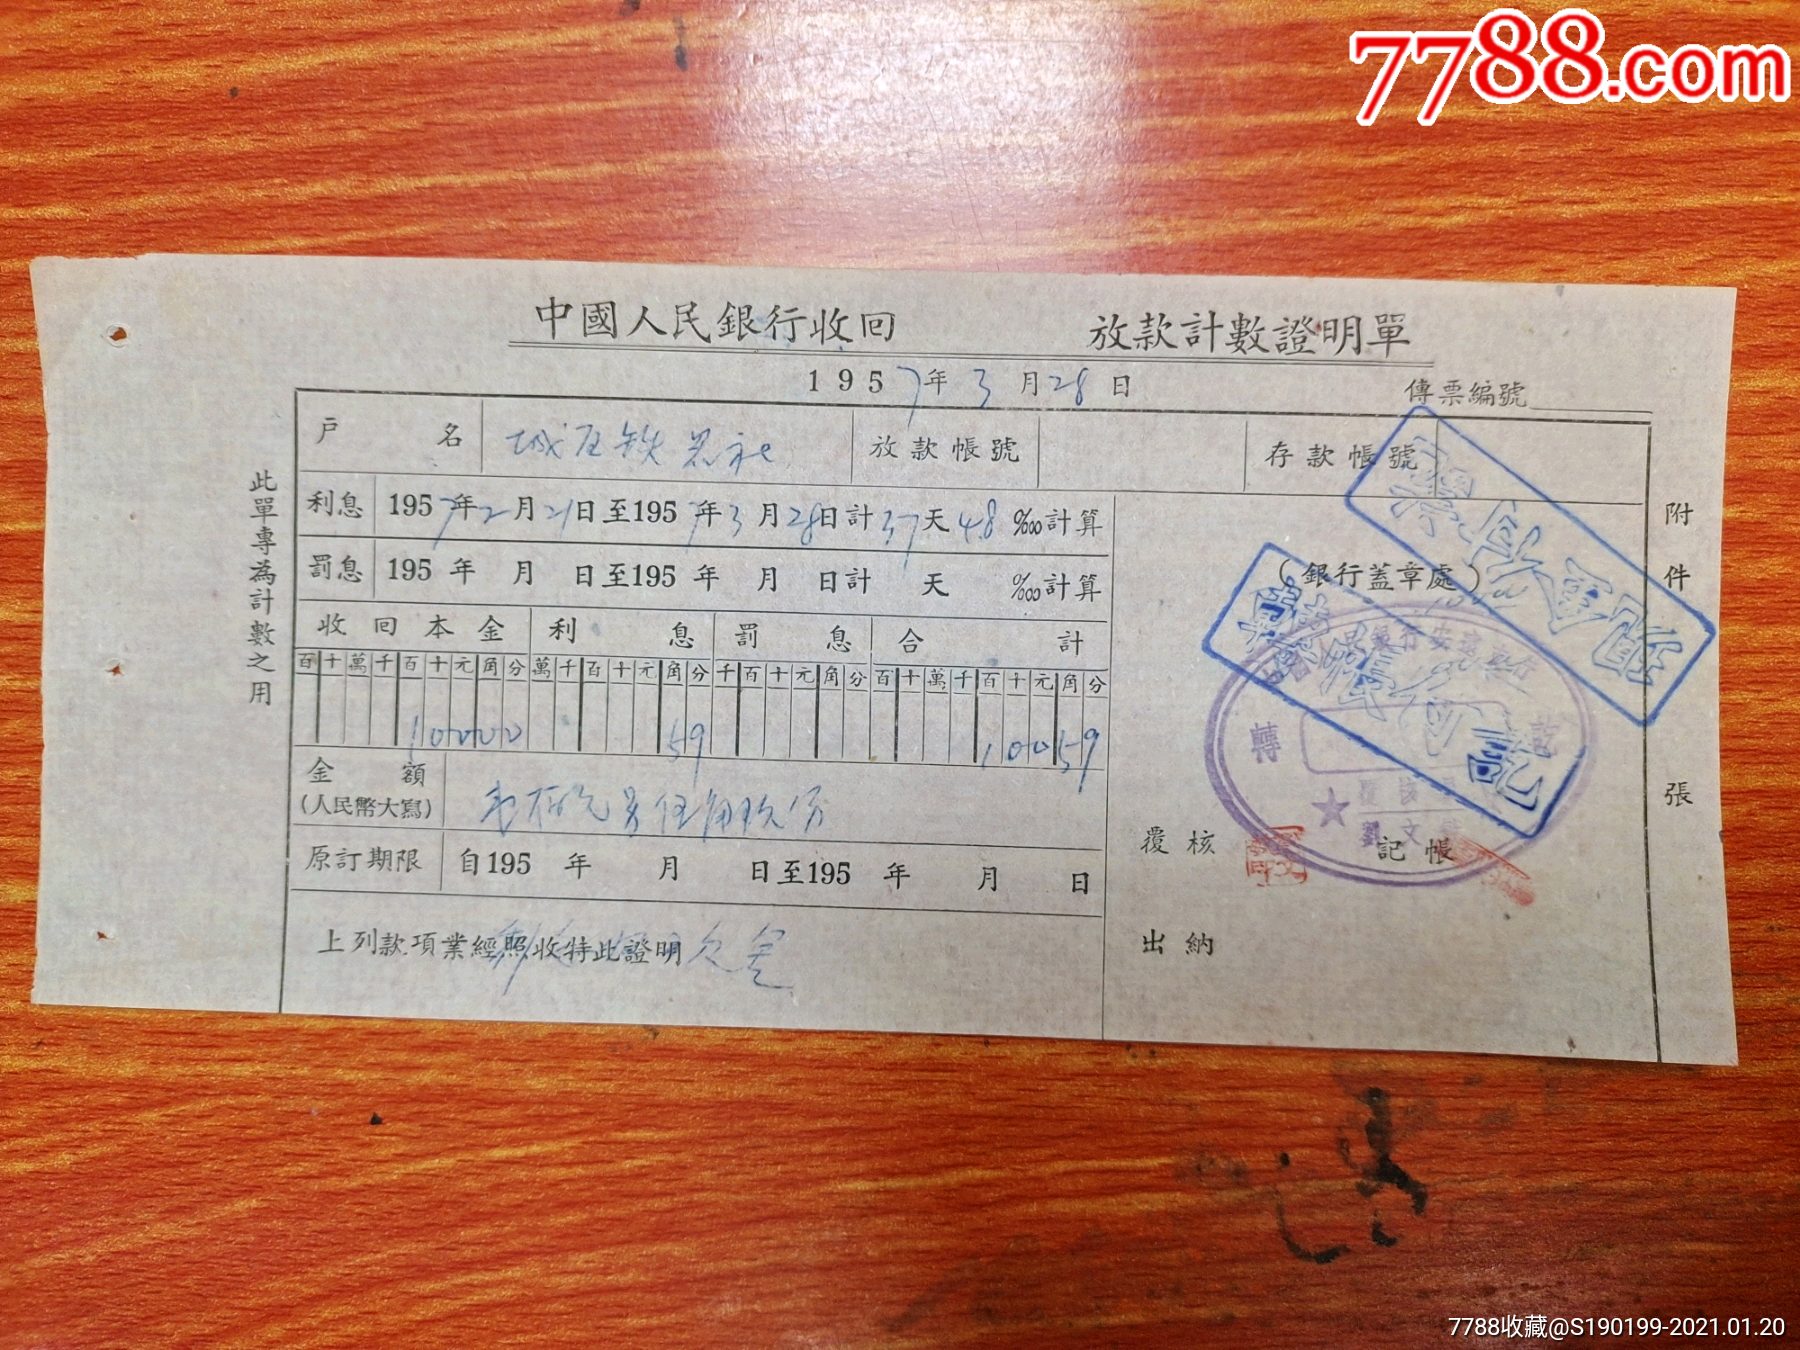 7788.com
中國人民銀行收回 放款計數證明單
1957年3月28日
傳票編號
戶名 城区铁器社 放款帳號 存款帳號
利息 1957年2月21日至1957年3月28日計37天4.8‱計算
罰息 195 年 月 日至195 年 月 日計 天 ‱計算
(銀行蓋章處)
收回本金 利息 罰息 合計
百十萬千百十元角分 萬千百十元角分 千百十元角分 百十萬千百十元角分
10000 59 10059
金額
(人民幣大寫)
原訂期限 自195 年 月 日至195 年 月 日
上列款項業經照收特此證明
覆核 記帳
出納
此單專為計數之用
附件 張
轉 訖
7788收藏@S190199-2021.01.20